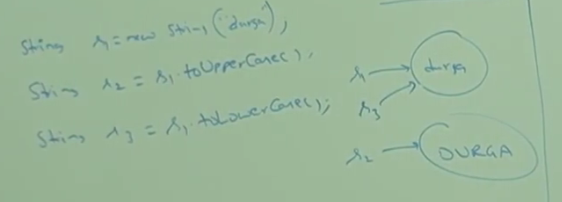 String s1 = new String("durga");
String s2 = s1.toUpperCase();
String s3 = s1.toLowerCase();
s1 → durga
s3
s2 → DURGA